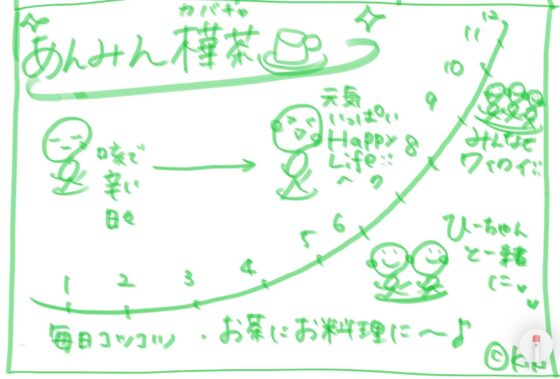 カバ茶
あんみん樺茶
咳で
辛い
日々
元気
いっぱい
Happy
Life::
へ
1
2
3
4
5
6
8
9
10
11
12
みんなで
ワイワイ::
ひーちゃん
と一緒
に♥♥
毎日コツコツ・お茶にお料理に〜♪